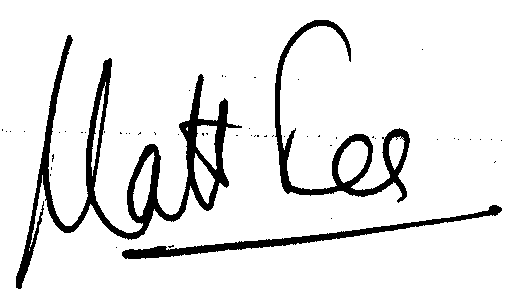 Matt Lee